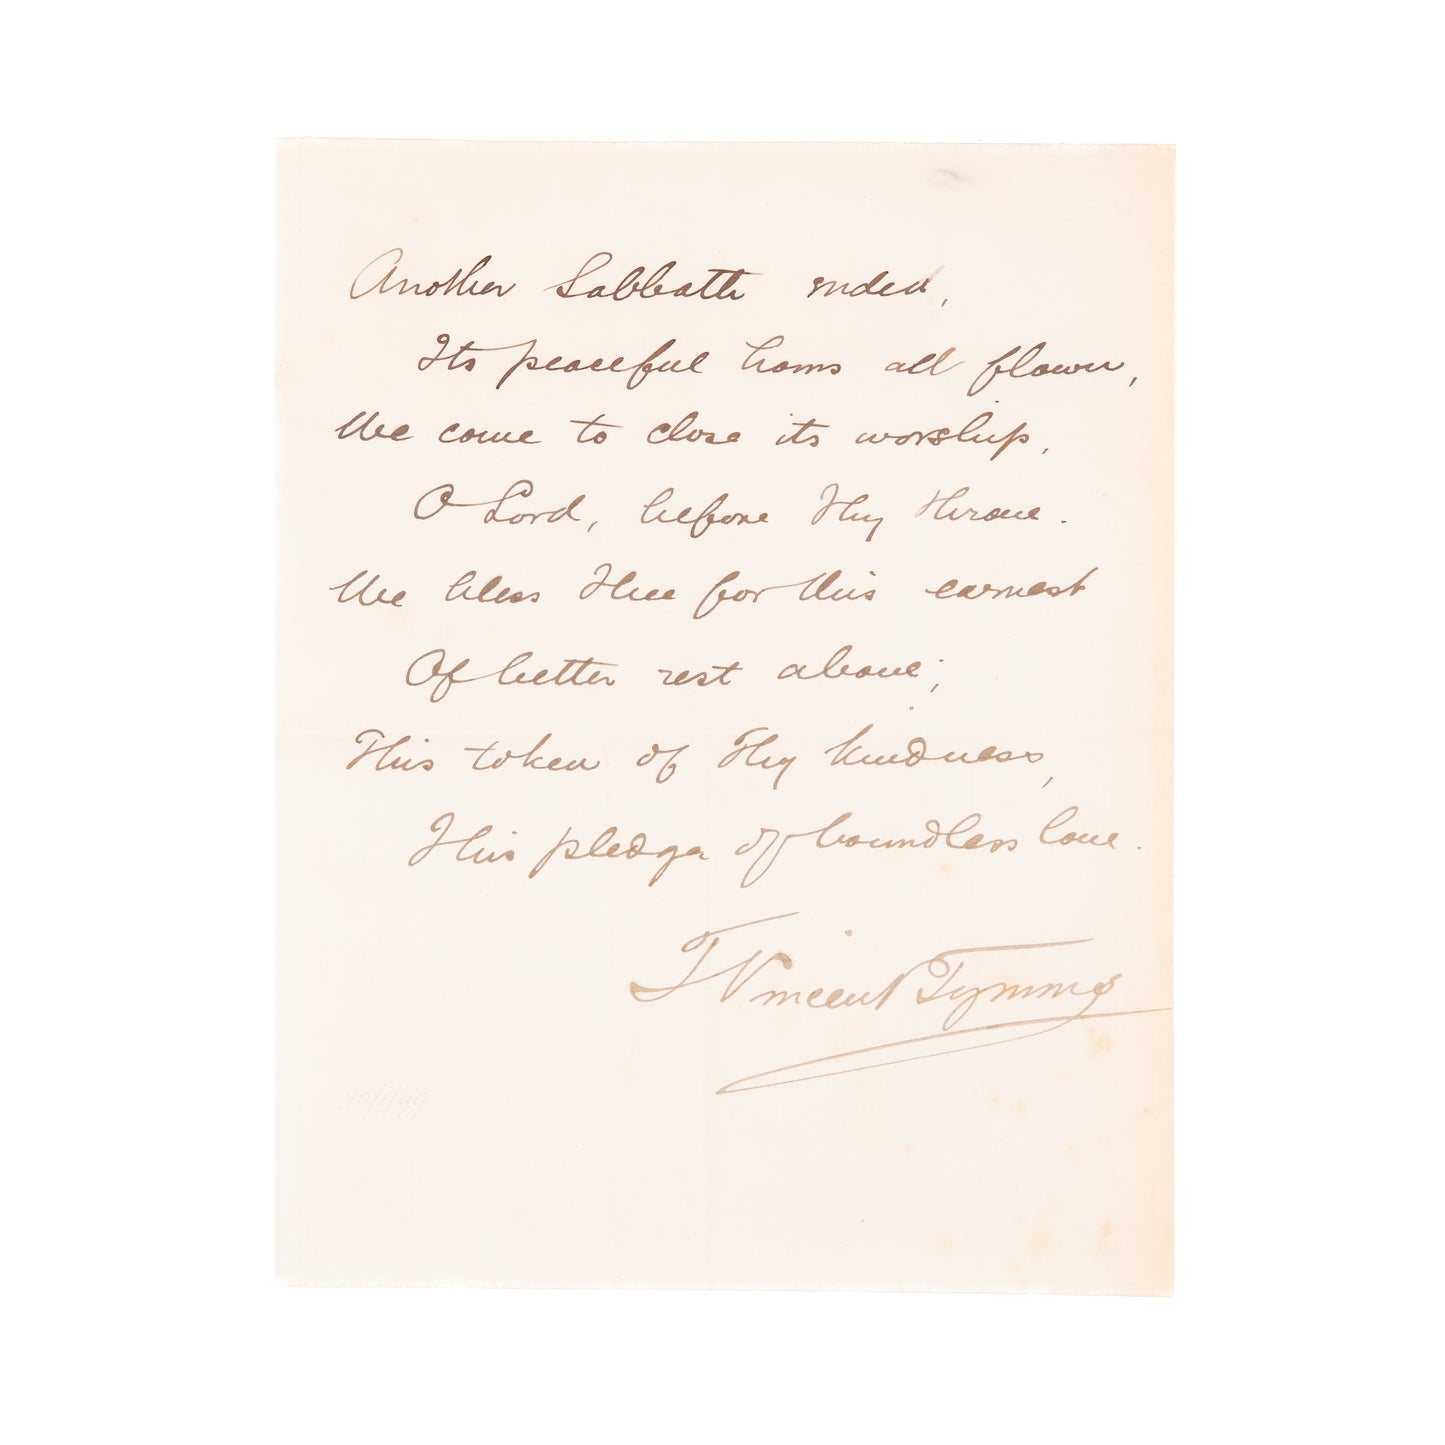 Another Sabbath ended,
Its peaceful hours all flown,
We come to close its worship,
O Lord, before Thy throne.
We bless Thee for this earnest
Of better rest above;
This token of Thy kindness,
This pledge of boundless love.
T Vincent Tymms